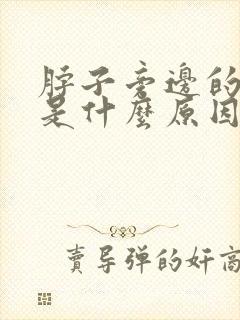 脖子旁邊的
是什麼原因
賣导弹的奸商